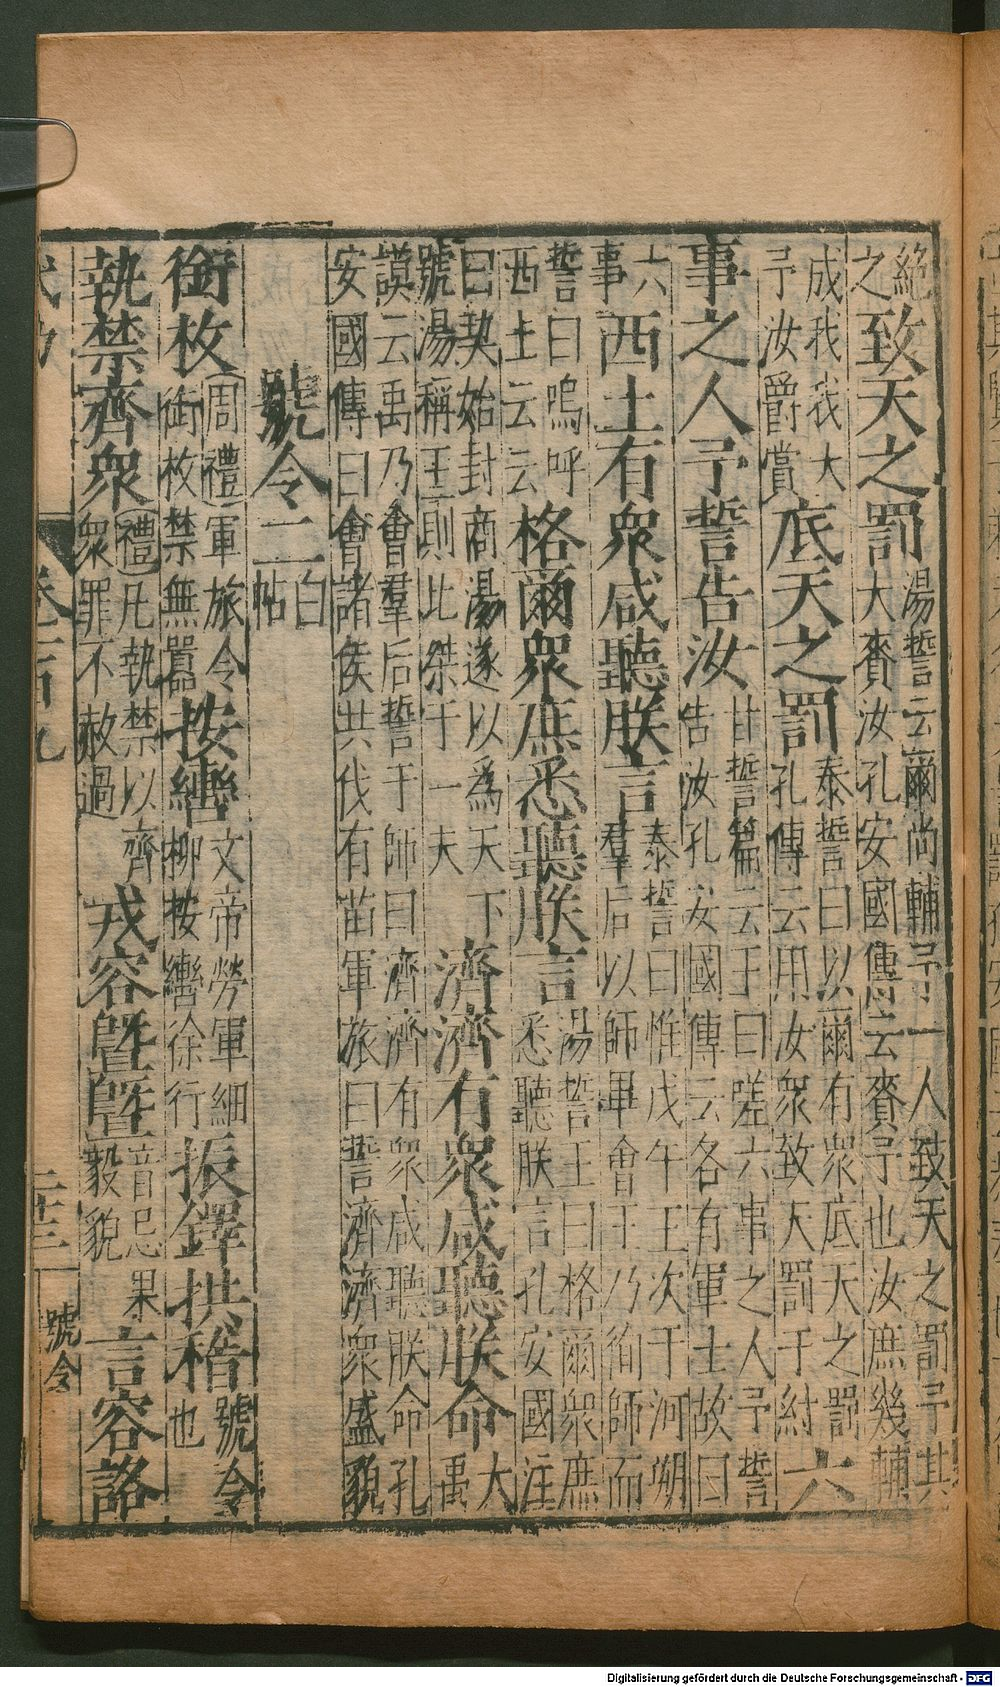 絕之致天之罰湯誓云爾尚輔予一人致天之罰予其大賚汝孔安國傳云賚予也汝庶幾輔
成我我大予汝爵賞底天之罰泰誓曰以爾有衆底天之罰孔傳云用汝衆致天罰于紂六
事之人予誓告汝甘誓篇云王曰嗟六事之人予誓告汝孔安國傳云各有軍士故曰
六事西土有衆咸聽朕言泰誓曰惟戊午王次于河朔羣后以師畢會王乃徇師而
誓曰嗚呼西土云云格爾衆庶悉聽朕言湯誓王曰格爾衆庶悉聽朕言孔安國注
曰契始封商湯遂以為天下號湯稱王則比桀于一夫濟濟有衆咸聽朕命大禹
謨云禹乃會羣后誓于師曰濟濟有衆咸聽朕命孔安國傳曰會諸侯共伐有苗軍旅曰誓濟濟衆盛貌
號令二白帖
銜枚周禮軍旅令銜枚禁無囂按轡文帝勞軍細柳按轡徐行振鐸拱稽號令也
執禁齊衆禮凡執禁以齊衆罪不赦過戎容曁曁音忌果毅貌言容詻
卷一百九 二十三 號令
Digitalisierung gefördert durch die Deutsche Forschungsgemeinschaft - DFG